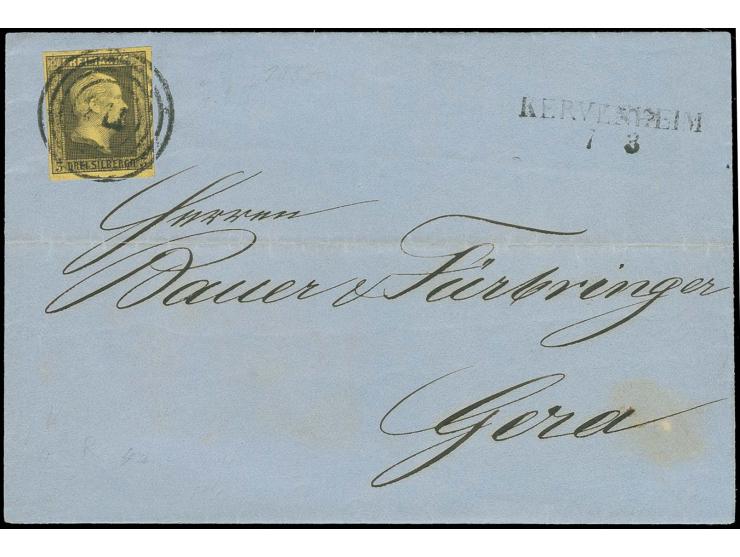 FREIMARKE
3 DREI SILBERGR. 3
KERVENHEIM
7 3
Herren
Bauer & Fürbringer
Gera